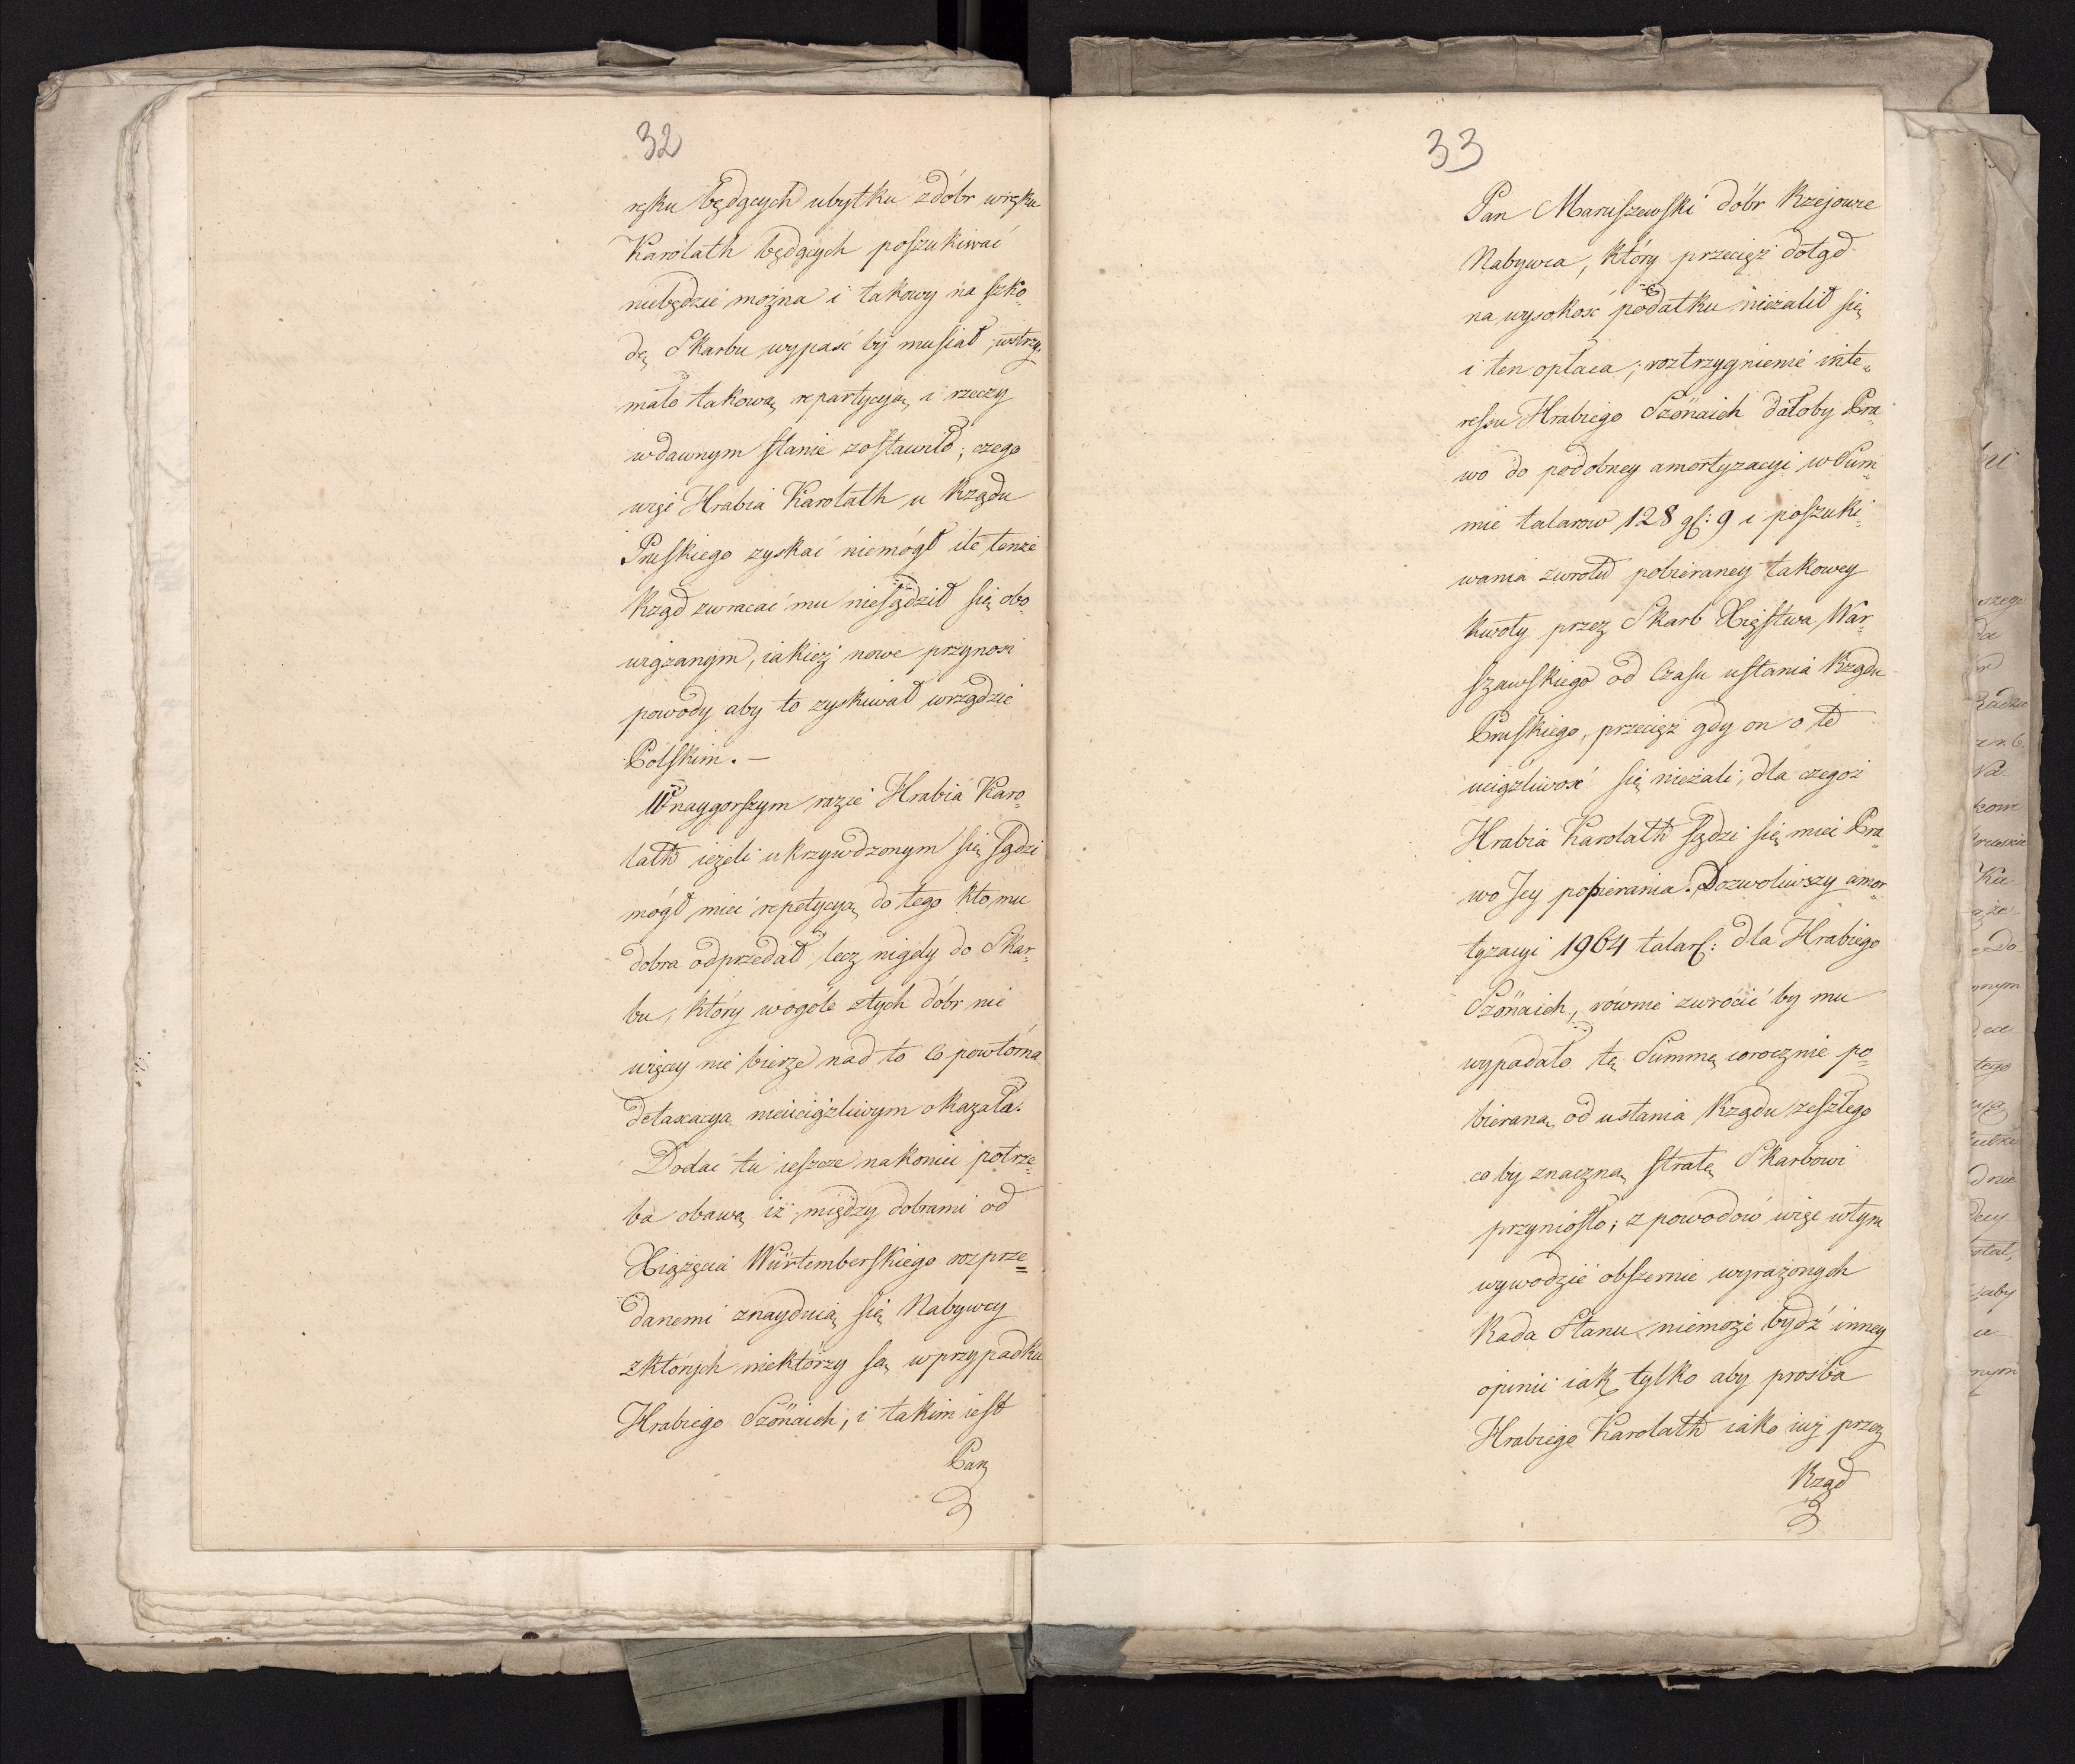 32
ręku będących ubytku z dóbr w ręku
Karolath będących poszukiwać
niebędzie można i takowy na szko-
dę Skarbu wypaść by musiał, wstrzy-
mało takową repartycyą i rzeczy
w dawnym stanie zostawił; czego
więc Hrabia Karolath u Rządu
Pruskiego zyskać niemógł ile tenże
Rząd zwracać mu niesądził się obo-
wiązanym, iakież nowe przynosi
powody aby to zyskiwał w rządzie
Polskim. —
W naygorszym razie Hrabia Karo-
lath ieżeli ukrzywdzonym się sądzi
mógł mieć repetycyą do tego kto mu
dobra odprzedał, lecz nigdy do Skar-
bu, który wogóle z tych dóbr nic
więcey nie bierze nad to co powtórna
detaxacya nieuciążliwym okazała.
Dodać tu ieszcze nakoniec potrze-
ba obawę iż między dobrami od
Xiążęcia Würtemberskiego rozprze-
danemi znayduią się Nabywcy
z których niektórzy są w przypadku
Hrabiego Szönaich, i takim iest
Pan
33
Pan Maruszewski dóbr Rzejowice
Nabywca, który przecięż dotąd
na wysokosc podatku nieżalił się
i ten opłaca; roztrzygnienie inte-
ressu Hrabiego Szönaich dałoby Pra-
wo do podobney amortyzacyi w Sum-
mie talarow 128 gſ: 9 i poszuki-
wania zwrotu pobieraney takowey
kwoty przez Skarb Xięstwa War-
szawskiego od Czasu ustania Rządu
Pruskiego, przecięż gdy on o tę
uciążliwość się nieżali, dla czegoż
Hrabia Karolath sądzi się mieć Pra-
wo Jey popierania. Dozwoliwszy amor-
tyzacyi 1964 talarſ: dla Hrabiego
Szönaich, rownie zwrócić by mu
wypadało tę Summę corocznie po-
bieraną od ustania Rządu zeszłego
co by znaczną stratę Skarbowi
przyniosło; z powodów więc w tym
wywodzie obszernie wyrażonych
Rada Stanu niemoże bydź inney
opinii iak tylko aby prośba
Hrabiego Karolath iako iuż przez
Rząd